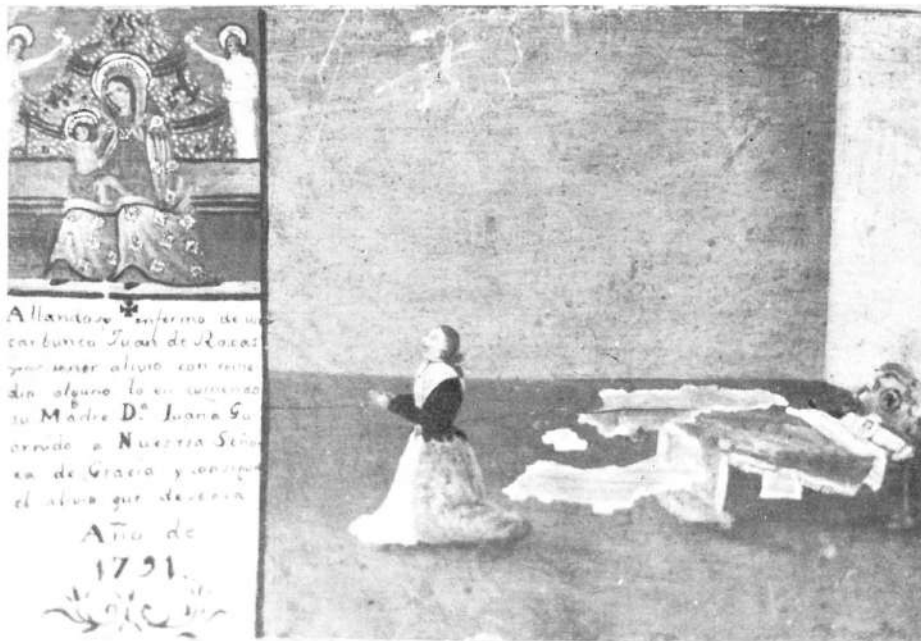 Allandose enfermo de un
carbunco Juan de Rocas
y no tener alivio con reme
dio alguno lo en comendo
su Madre Dª. Juana Gu
arnido a Nuestra Seño
ra de Gracia y consiguio
el alivio que deseaba
Año de
1791.